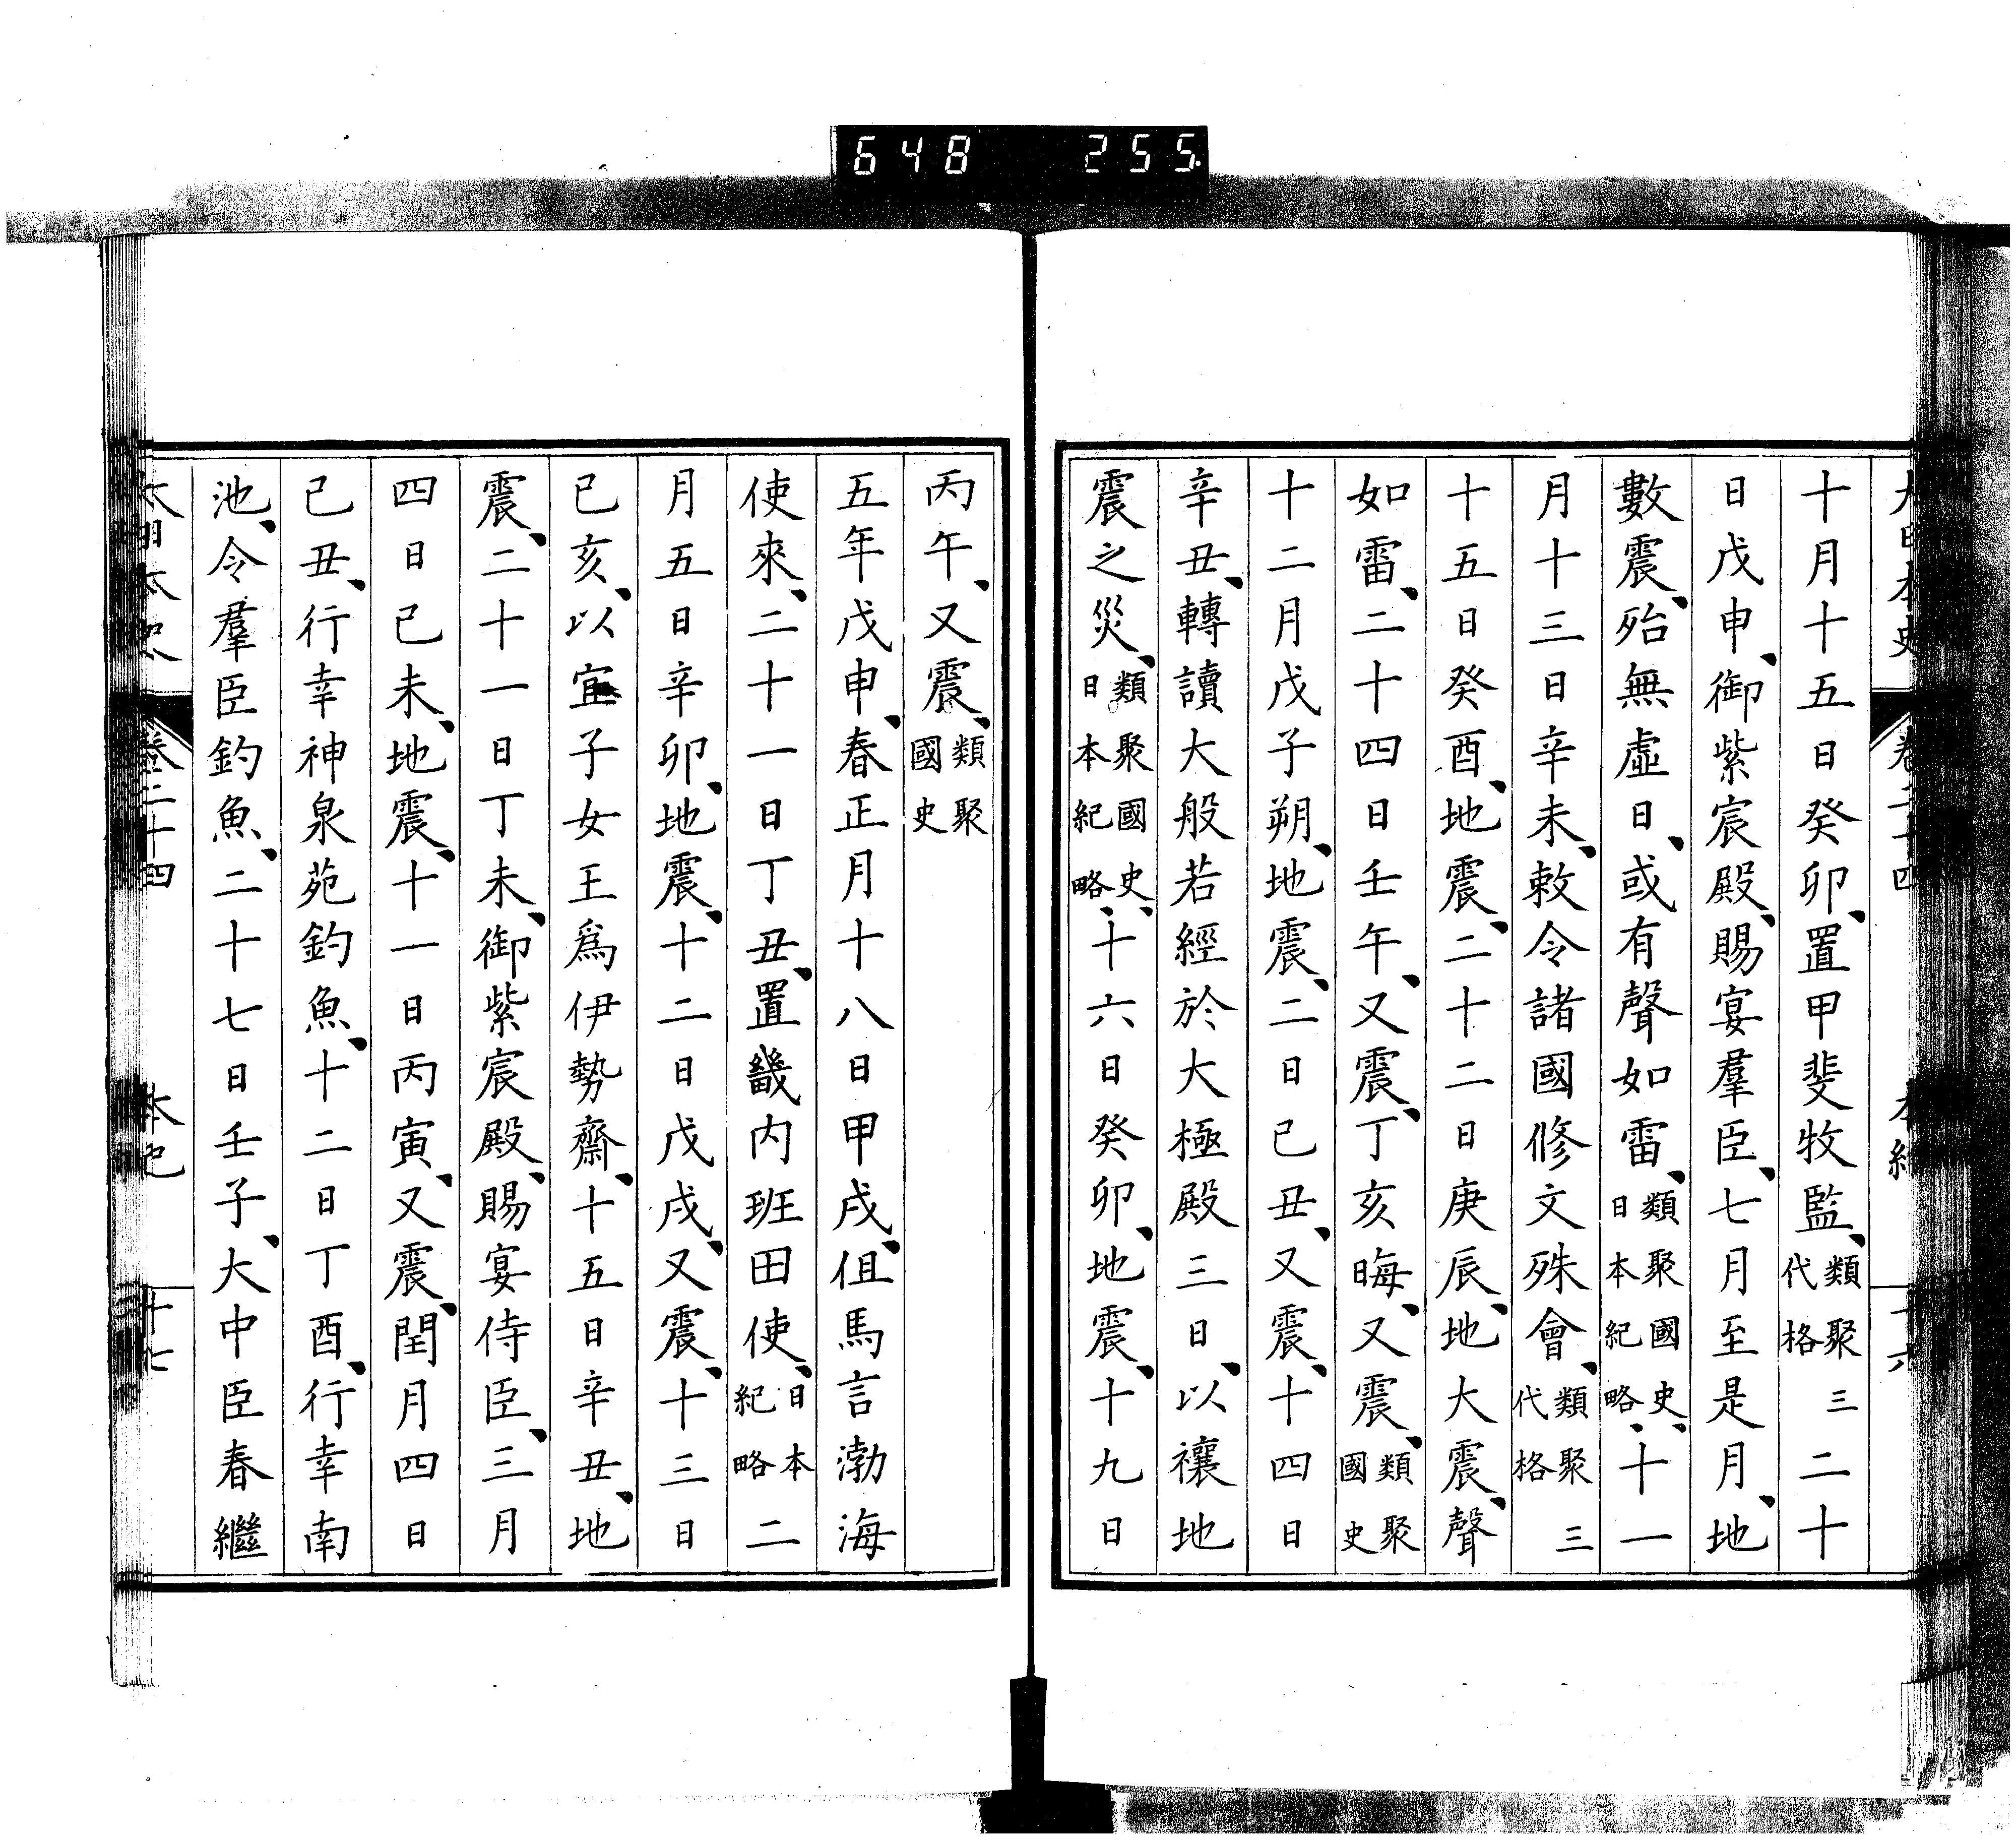 648 255
大日本史 卷二十四 本紀 十六
十月十五日癸卯、置甲斐牧監、類聚三代格二十
日戊申、御紫宸殿、賜宴羣臣、七月至是月、地
數震、殆無虛日、或有聲如雷、類聚國史、日本紀略、十一
月十三日辛未、敕令諸國修文殊會、類聚三代格
十五日癸酉、地震、二十二日庚辰、地大震、聲
如雷、二十四日壬午、又震、丁亥晦、又震、類聚國史
十二月戊子朔、地震、二日己丑、又震、十四日
辛丑、轉讀大般若經於大極殿三日、以禳地
震之災、類聚國史、日本紀略、十六日癸卯、地震、十九日
丙午、又震、類聚國史
五年戊申、春正月十八日甲戌、但馬言渤海
使來、二十一日丁丑、置畿内班田使、日本紀略二
月五日辛卯、地震、十二日戊戌、又震、十三日
己亥、以宜子女王爲伊勢齋、十五日辛丑、地
震、二十一日丁未、御紫宸殿、賜宴侍臣、三月
四日己未、地震、十一日丙寅、又震、閏月四日
己丑、行幸神泉苑釣魚、十二日丁酉、行幸南
池、令羣臣釣魚、二十七日壬子、大中臣春繼
大日本史 卷二十四 本紀 十七